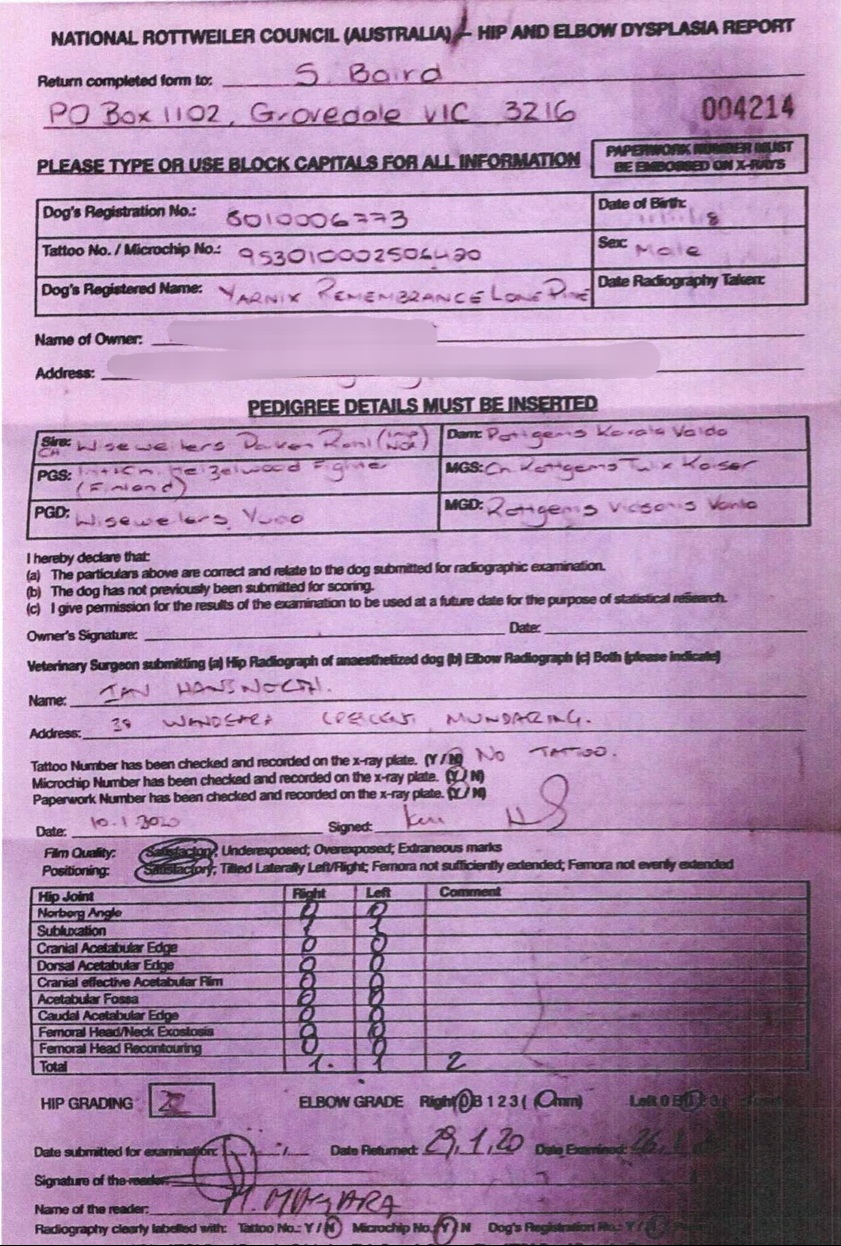 NATIONAL ROTTWEILER COUNCIL (AUSTRALIA) – HIP AND ELBOW DYSPLASIA REPORT
Return completed form to: S. Baird
PO Box 1102, Grovedale VIC 3216 004214
PLEASE TYPE OR USE BLOCK CAPITALS FOR ALL INFORMATION PAPERWORK NUMBER MUST BE EMBOSSED ON X-RAYS
Dog's Registration No.: 6010006773 Date of Birth:
Tattoo No. / Microchip No.: 953010002506420 Sex: Male
Dog's Registered Name: YARNIX REMEMBRANCE LONE PINE Date Radiography Taken:
Name of Owner:
Address:
PEDIGREE DETAILS MUST BE INSERTED
Sire: CH Wiseweilers (imp NOR) Dam: Rottgems Karala Valda
PGS: Fighter (Finland) MGS: Ch Rottgems Tulix Kaiser
PGD: MGD: Rottgems
I hereby declare that:
(a) The particulars above are correct and relate to the dog submitted for radiographic examination.
(b) The dog has not previously been submitted for scoring.
(c) I give permission for the results of the examination to be used at a future date for the purpose of statistical research.
Owner's Signature: Date:
Veterinary Surgeon submitting (a) Hip Radiograph of anaesthetized dog (b) Elbow Radiograph (c) Both (please indicate)
Name: IAN
Address: 38 MUNDARING.
Tattoo Number has been checked and recorded on the x-ray plate. (Y / N) NO TATTOO.
Microchip Number has been checked and recorded on the x-ray plate. (Y / N)
Paperwork Number has been checked and recorded on the x-ray plate. (Y / N)
Date: 10.1.2020 Signed:
Film Quality: Satisfactory; Underexposed; Overexposed; Extraneous marks
Positioning: Satisfactory; Tilted Laterally Left/Right; Femora not sufficiently extended; Femora not evenly extended
Hip Joint Right Left Comment
Norberg Angle 0 0
Subluxation 1 1
Cranial Acetabular Edge 0 0
Dorsal Acetabular Edge 0 0
Cranial effective Acetabular Rim 0 0
Acetabular Fossa 0 0
Caudal Acetabular Edge 0 0
Femoral Head/Neck Exostosis 0 0
Femoral Head Recontouring 0 0
Total 1. 1 2
HIP GRADING 2 ELBOW GRADE Right 0 B 1 2 3 ( 0mm) Left 0 B
Date submitted for examination: Date Returned: 29,1,20 Date Examined: 26,1
Signature of the reader:
Name of the reader:
Radiography clearly labelled with: Tattoo No.: Y / N Microchip No.: Y / N Dog's Registration No.: Y /